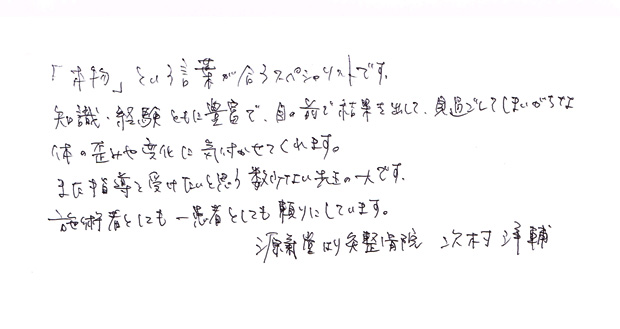 「本物」という言葉が合うスペシャリストです。
知識・経験ともに豊富で、目の前で結果を出して、見過ごしてしまいがちな
体の歪みや変化に気付かせてくれます。
また指導を受けたいと思う数少ない先生の一人です。
施術者としても一患者としても頼りにしています。
源氣堂はり灸整骨院 次村 洋輔